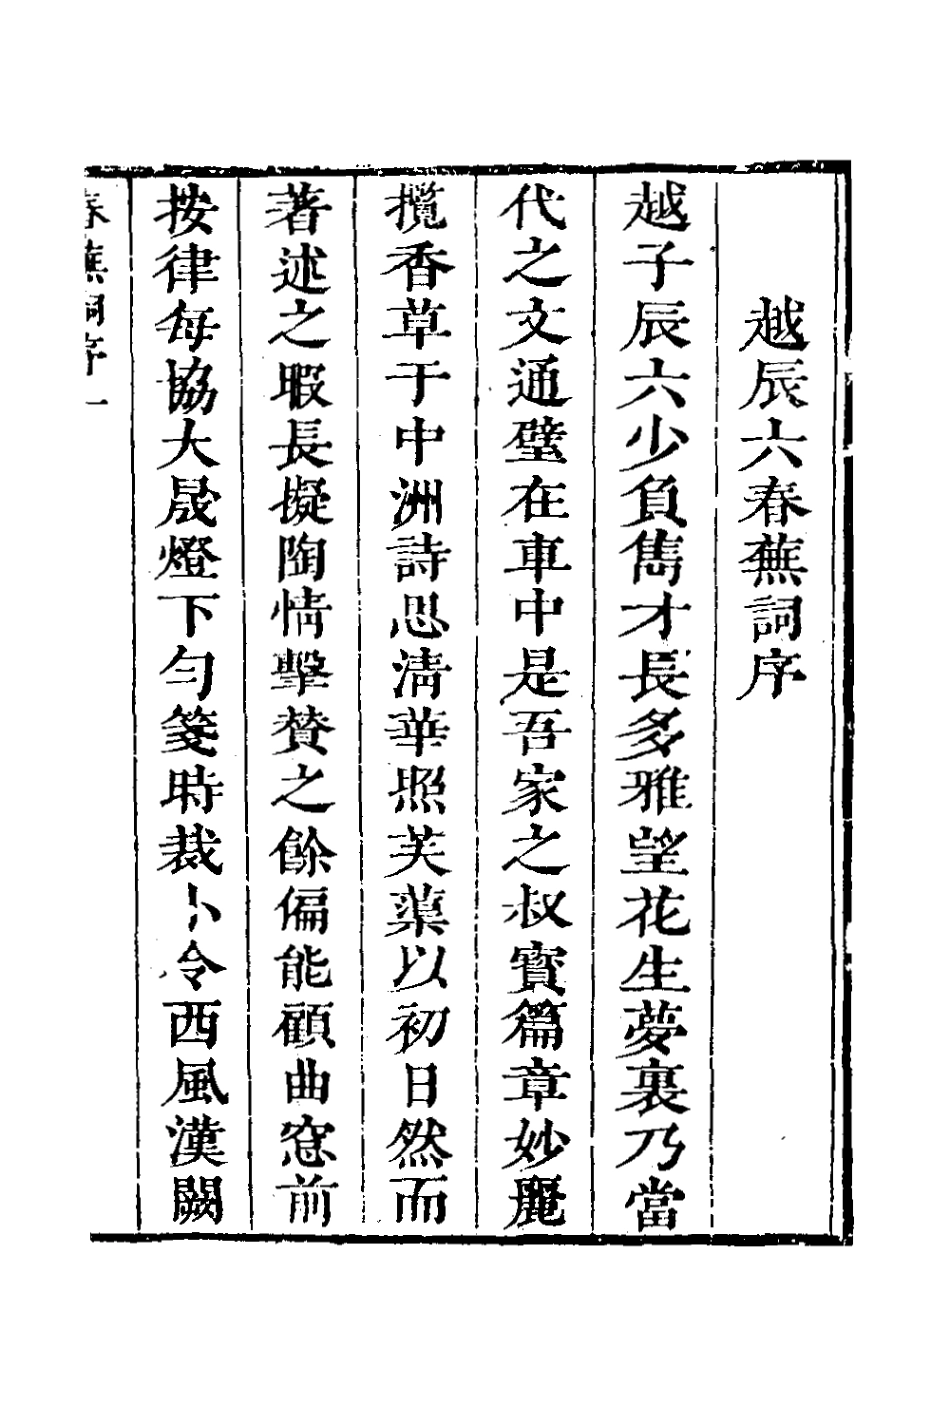 越辰六春蕪詞序
越子辰六少負雋才長多雅望花生夢裏乃當
代之文通璧在車中是吾家之叔寳篇章妙麗
攬香草于中洲詩思淸華照芙蕖以初日然而
著述之暇長擬陶情擊賛之餘偏能顧曲窓前
按律每協大晟燈下勻箋時裁卜令西風漢闕
春蕪詞序一